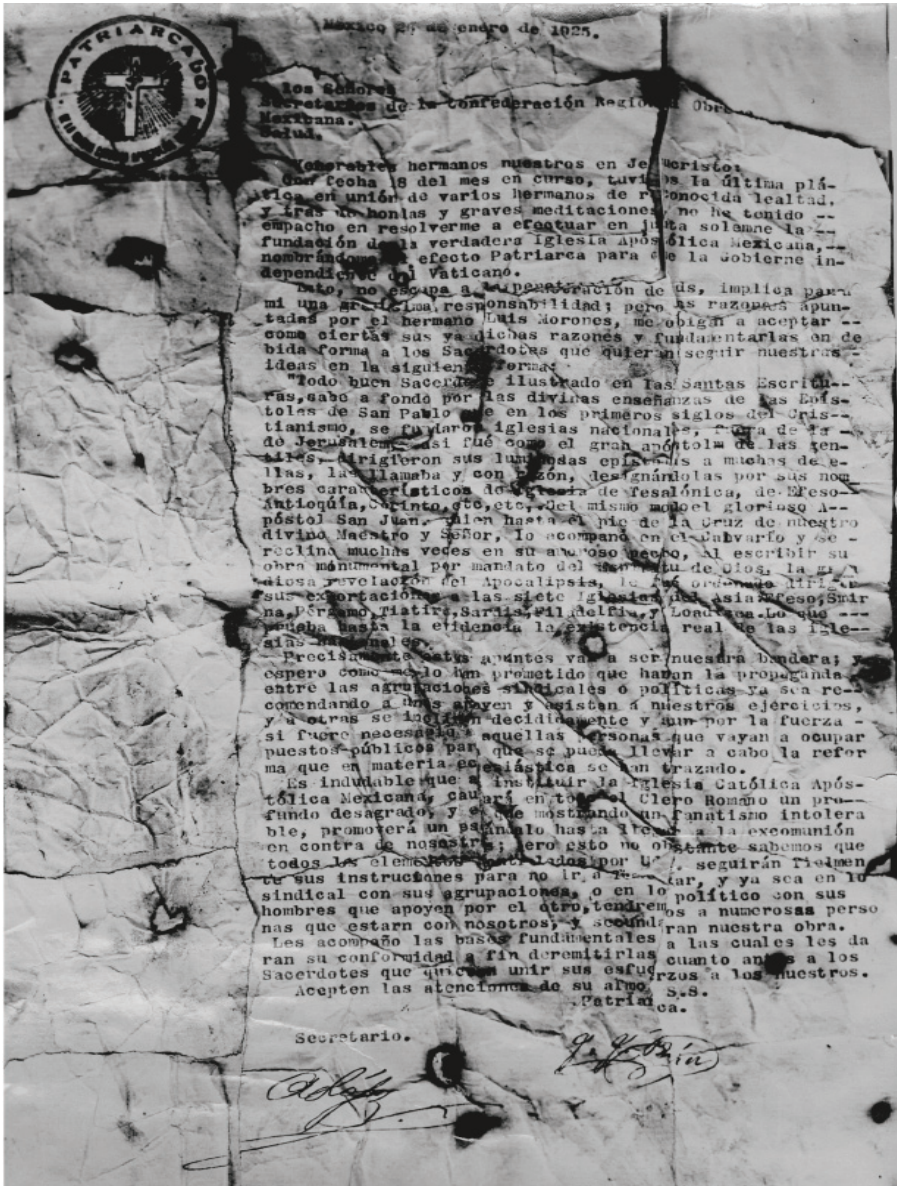 PATRIARCADO
México 2 de enero de 1925.
los Señores
Secretarios de la Confederación Regional Obre
Mexicana.
Salud.
Venorables hermanos nuestros en Jesucristo:
Con fecha 18 del mes en curso, tuvimos la última plá-
tica en unión de varios hermanos de reconocida lealtad,
y tras de hondas y graves meditaciones, no he tenido --
empacho en resolverme a efectuar en junta solemne la --
fundación de la verdadera Iglesia Apostólica Mexicana,--
nombrándome efecto Patriarca para que la Gobierne in-
dependiente del Vaticano.
Esto, no escapa a la penetración de ds, implica para
mi una gravísima responsabilidad; pero las razones apun-
tadas por el hermano Luis Morones, me obigan a aceptar --
como ciertas sus ya dichas razones y fundamentarlas en de
bida forma a los Sacerdotes que quieran seguir nuestras -
ideas en la siguiente forma:
"Todo buen Sacerdote ilustrado en las Santas Escritu--
ras, sabe a fondo por las divinas enseñanzas de las Epís-
tolas de San Pablo que en los primeros siglos del Cris--
tianismo, se fundaron iglesias nacionales, fuera de la -
de Jerusalem; asi fué como el gran apóstolm de las gen-
tiles, dirigieron sus luminosas epístolas a muchas de e-
llas, las llamaba y con razón, designándolas por sus nom
bres característicos de Iglesia de Tesalónica, de Efeso-
Antioquía, Corinto, etc, etc,. Del mismo modoel glorioso A-
póstol San Juan, quien hasta el pie de la Cruz de nuestro
divino Maestro y Señor, lo acompañó en el Calvario y se -
reclinó muchas veces en su amoroso pecho, Al escribir su
obra monumental por mandato del Espíritu de Dios, la gran
diosa revelación del Apocalipsis, le fué ordenado dirigir
sus exortaciones a las siete Iglesias del Asia: Efeso, Smir
na, Pérgamo, Tiatira, Sardis, Filadelfia, y Loadicea. Lo que ---
prueba hasta la evidencia la existencia real de las igle--
sias nacionales.
Precisamente estos apuntes van a ser nuestra bandera; y
espero como me lo han prometido que hagan la propaganda
entre las agrupaciones sindicales o políticas ya sea re--
comendando a unas apoyen y asistan a nuestros ejercicios,
y a otras se inclinen decididamente y aun por la fuerza -
si fuere necesario a aquellas personas que vayan a ocupar
puestos públicos para que se pueda llevar a cabo la refor
ma que en materia eclesiástica se han trazado.
Es indudable que al instituir la Iglesia Católica Após-
tólica Mexicana, causará en todo el Clero Romano un pro--
fundo desagrado, y el que mostrando un fanatismo intolera
ble, promoverá un escándalo hasta llegar a la excomunión
en contra de nosotros; pero esto no obstante sabemos que
todos los elementos controlados por U seguirán fielmen
te sus instrucciones para no ir a ar, y ya sea en lo
sindical con sus agrupaciones, o en lo político con sus
hombres que apoyen por el otro, tendremos a numerosas perso
nas que estarn con nosotros, y secundaran nuestra obra.
Les acompaño las bases fundamentales a las cuales les da
ran su conformidad a fin deremitirlas cuanto antes a los
Sacerdotes que quieran unir sus esfuerzos a los nuestros.
Acepten las atenciones de su afmo. S.S.
Patriarca.
Secretario.